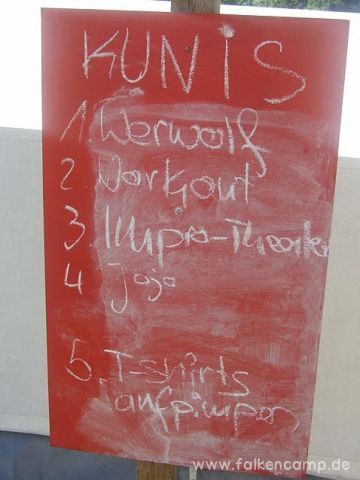 KUNiS
1. Werwolf
2 Workout
3 Impro-Theater
4 Jojo
5. T-shirts
aufpimpen
www.falkencamp.de